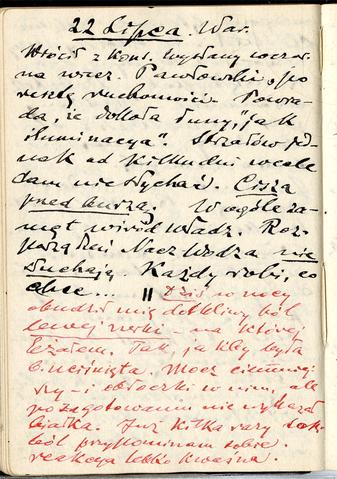 22 Lipca. War.
Wrócił z Kons. wysłany wczoraj
na wiecz. Pawłowski „po
resztę ruchomości. Powia-
da, że dokoła łuny, "jak
iluminacya". Strzałów jed-
nak od kilku dni wcale
tam nie słychać. Cisza
przed burzą. W ogóle za-
męt wśród władz. Roz-
porządzeń Nacz Wodza nie
słuchają. Każdy robi, co
chce... || Dziś w nocy
obudził mię dotkliwy ból
lewej nerki - na której
leżałem. Tak, jakby była
ciemn-
ry - i obłoczki w nim, ale
po zagotowaniu nie wykazał
białka. Już kilka razy taki
ból przypominam sobie.
reakcya lekko kwaśna.